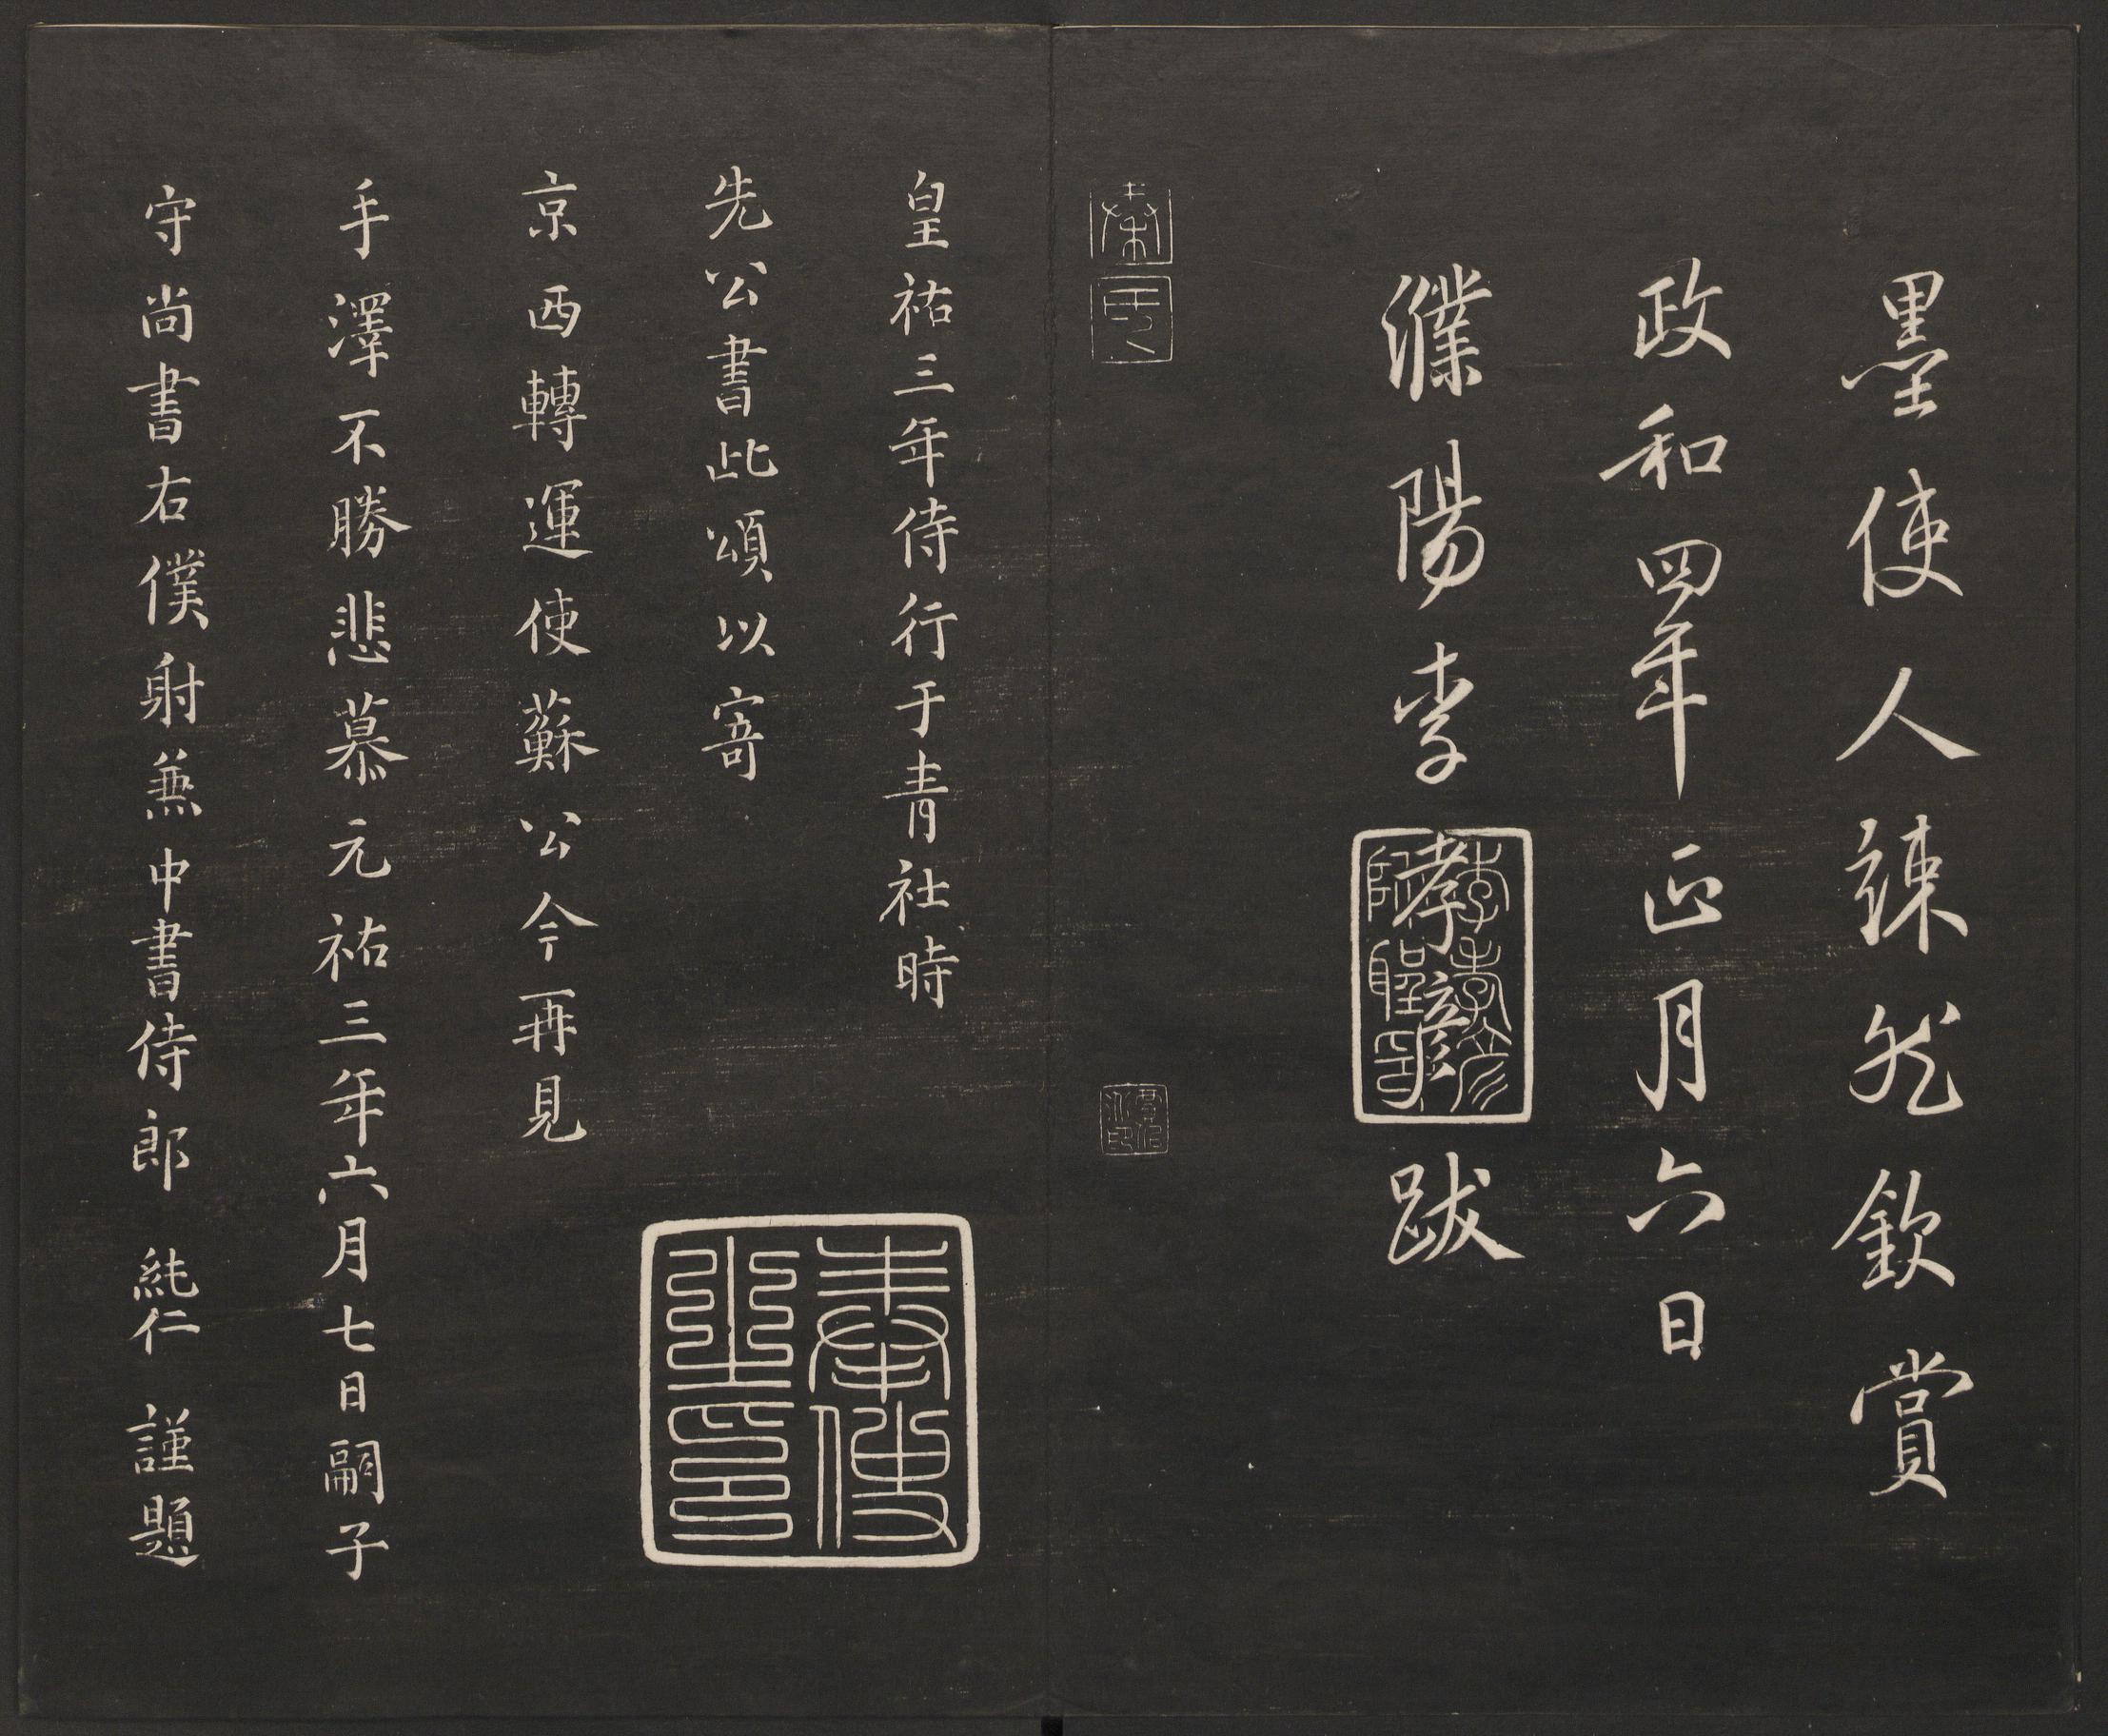 墨使人竦然欽賞
政和四年正月六日
濮陽李孝彥跋
皇祐三年侍行于青社時
先公書此頌以寄
京西轉運使蘇公今再見
手澤不勝悲慕元祐三年六月七日嗣子
守尚書右僕射兼中書侍郎純仁謹題